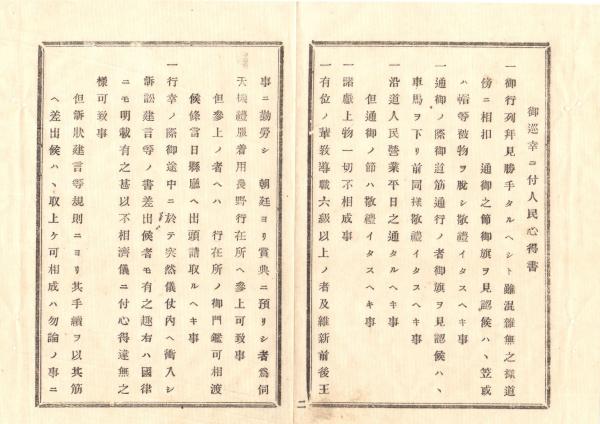 御巡幸ニ付人民心得書
一御行列拜見勝手タルヘシト雖混雜無之樣道
傍ニ相扣　通御之節御旗ヲ見認候ハヽ笠或
ハ帽等被物ヲ脫シ敬禮イタスヘキ事
一通御ノ際御道筋通行ノ者御旗ヲ見認候ハヽ
車馬ヲ下リ前同樣敬禮イタスヘキ事
一沿道人民營業平日之通タルヘキ事
但通御ノ節ハ敬禮イタスヘキ事
一諸戲上物一切不相成事
一有位ノ華敎導職六級以上ノ者及維新前後王
二
事ニ勤勞シ　朝廷ヨリ賞典ニ預リシ者爲伺
天機禮服着用長野行在所ヘ參上可致事
但參上ノ者ヘハ　行在所ノ御門鑑可相渡
候條當日縣廳ヘ出頭請取ルヘキ事
一行幸ノ際御途中ニ於テ突然儀仗內ヘ衝入シ
訴訟建言等ノ書差出候者モ有之趣右ハ國律
ニモ明載有之甚以不相濟儀ニ付心得違無之
樣可致事
但訴狀建言等規則ニヨリ其手續ヲ以其筋
ヘ差出候ハヽ取上ケ可相成ハ勿論ノ事ニ